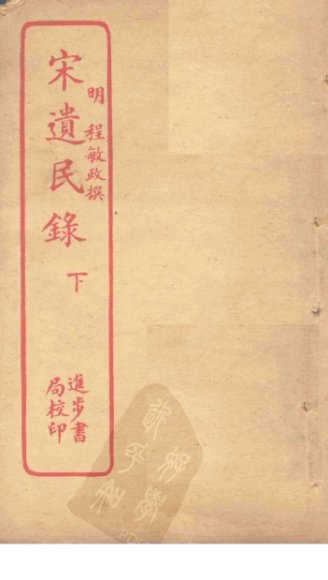 宋遺民錄 下
明 程敏政撰
進步書
局校印